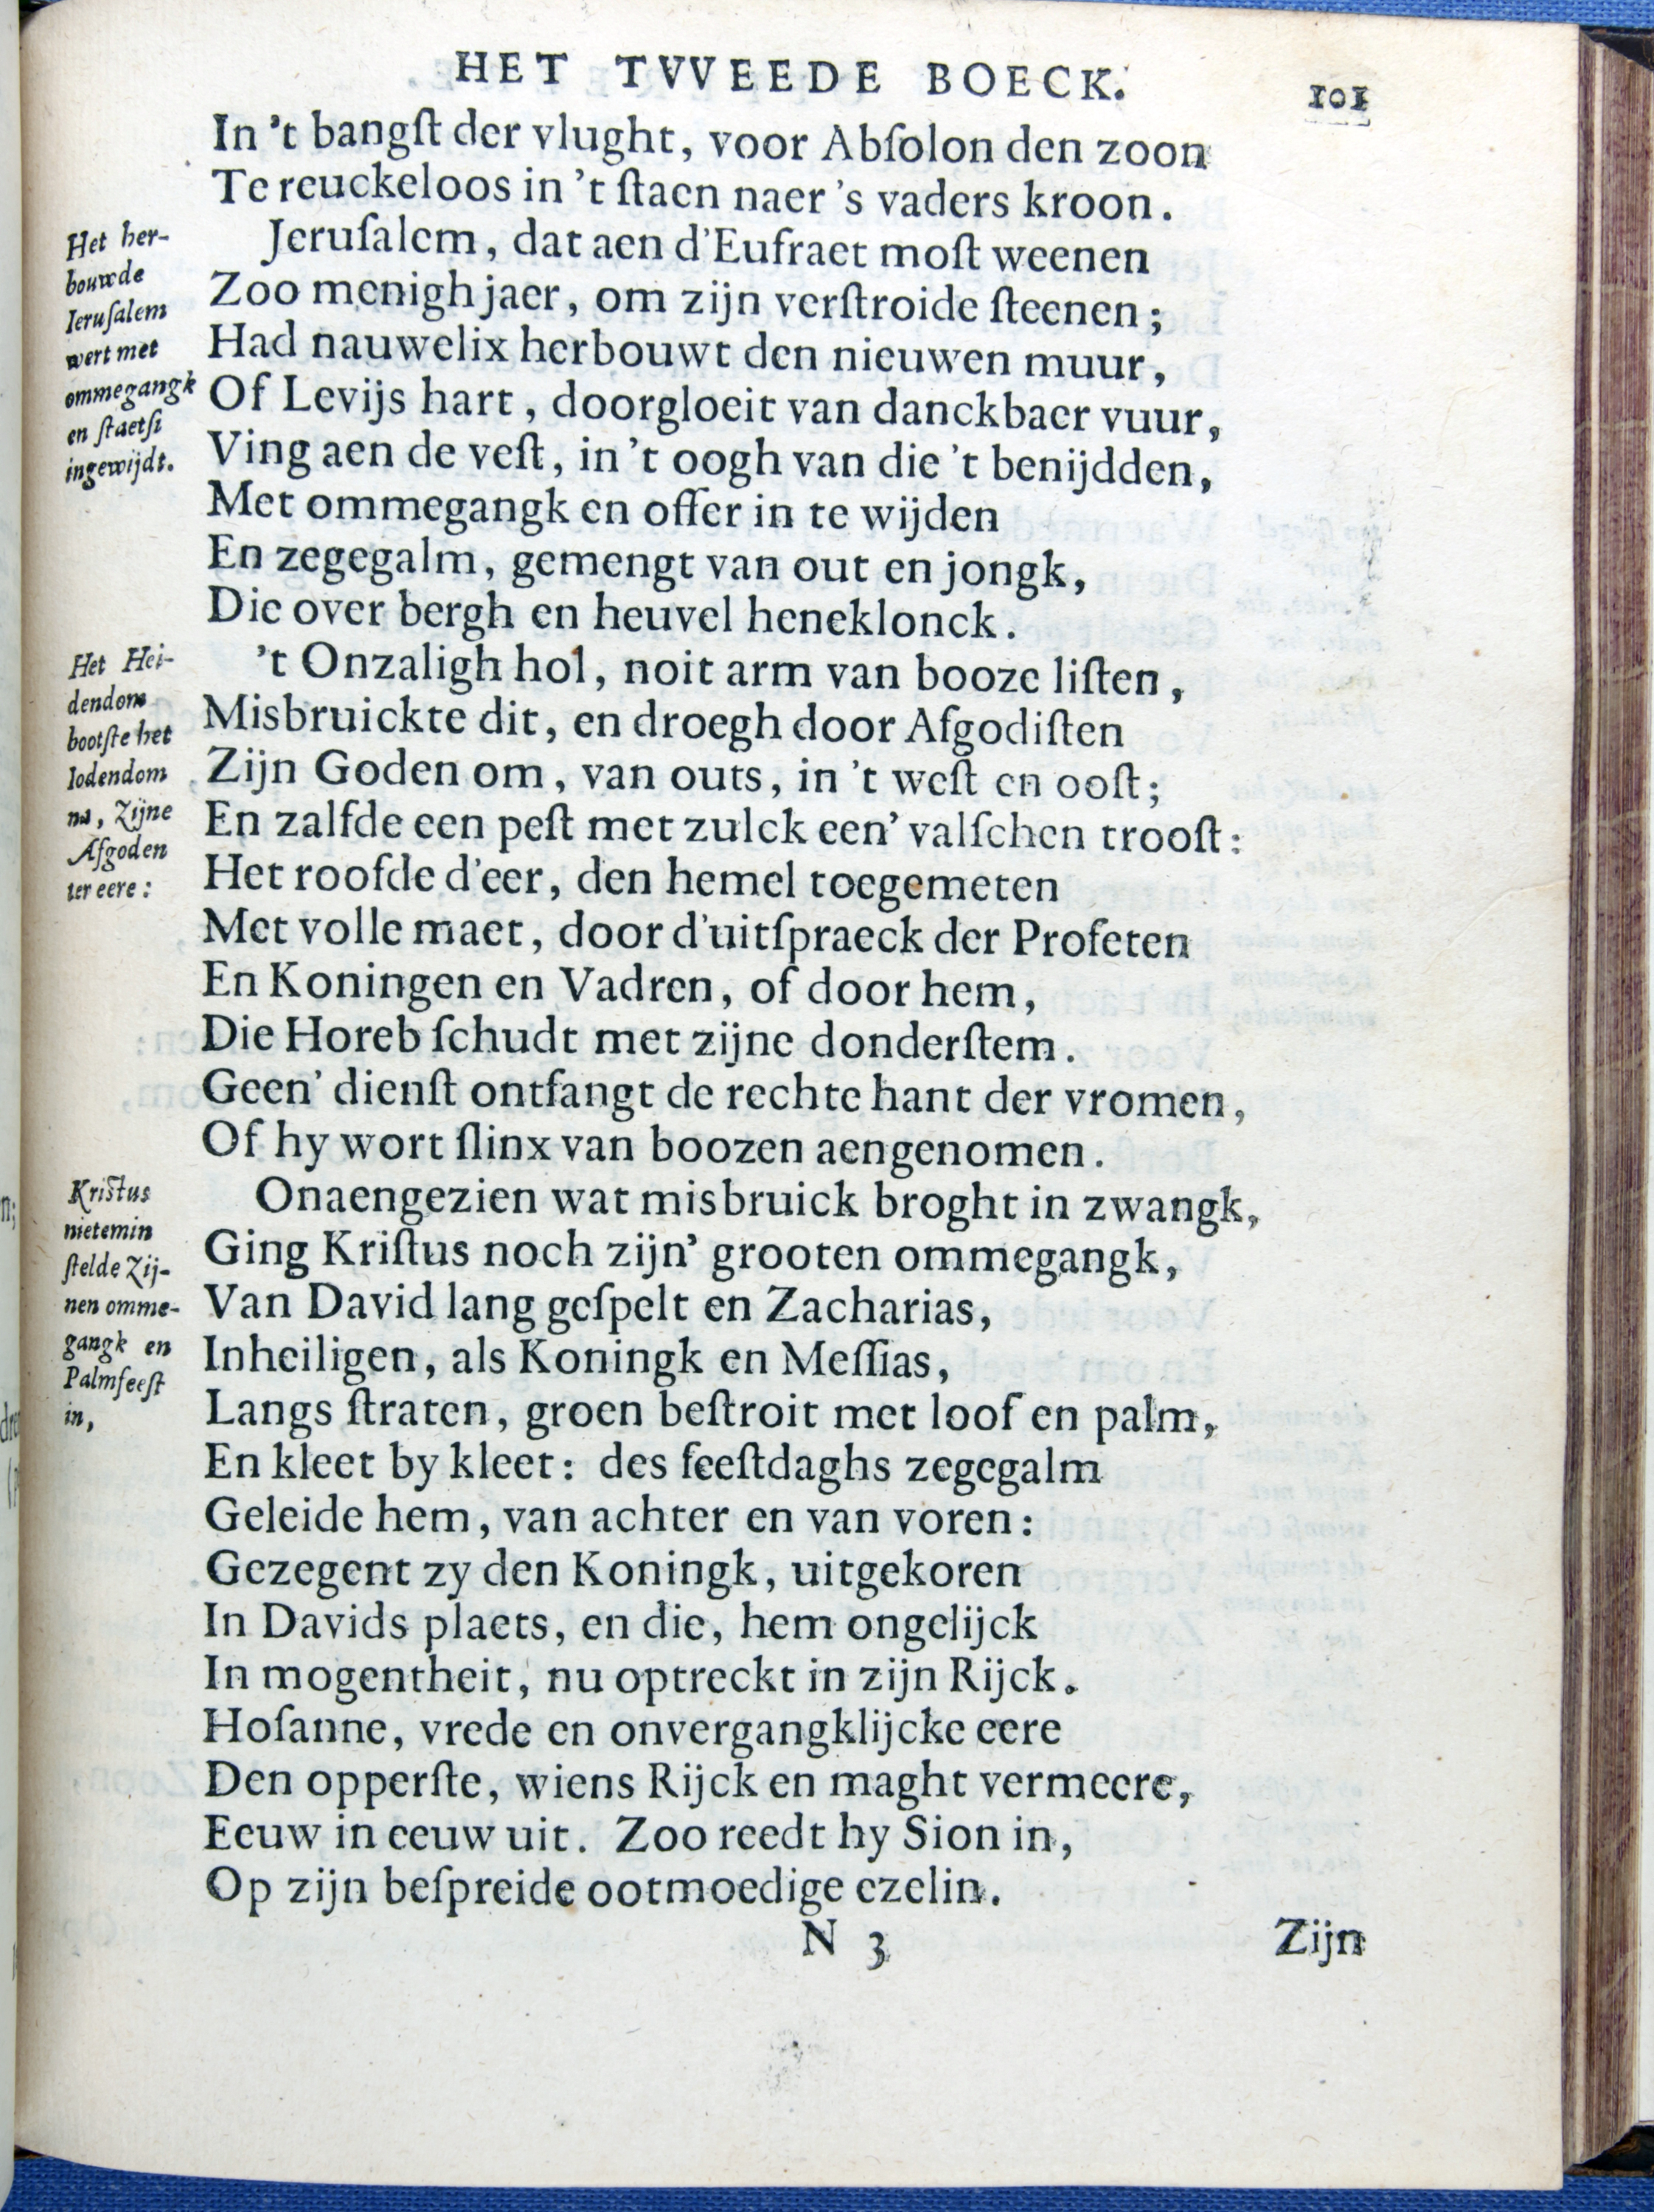 HET TVVEEDE BOECK.
101
In 't bangſt der vlught, voor Abſolon den zoon
Te reuckeloos in 't ſtaen naer 's vaders kroon.
Het her-
bouwde
Ieruſalem
wert met
ommegangk
en ſtaetſi
ingewijdt.
Jeruſalem, dat aen d'Eufraet moſt weenen
Zoo menigh jaer, om zijn verſtroide ſteenen;
Had nauwelix herbouwt den nieuwen muur,
Of Levijs hart, doorgloeit van danckbaer vuur,
Ving aen de veſt, in 't oogh van die 't benijdden,
Met ommegangk en offer in te wijden
En zegegalm, gemengt van out en jongk,
Die over bergh en heuvel heneklonck.
Het Hei-
dendom
bootſte het
Iodendom
na, Zijne
Afgoden
ter eere:
't Onzaligh hol, noit arm van booze liſten,
Misbruickte dit, en droegh door Afgodiſten
Zijn Goden om, van outs, in 't weſt en ooſt;
En zalfde een peſt met zulck een' valſchen trooſt:
Het roofde d'eer, den hemel toegemeten
Met volle maet, door d'uitſpraeck der Profeten
En Koningen en Vadren, of door hem,
Die Horeb ſchudt met zijne donderſtem.
Geen' dienſt ontfangt de rechte hant der vromen,
Of hy wort ſlinx van boozen aengenomen.
Kristus
nietemin
ſtelde Zij-
nen omme-
gangk en
Palmfeeſt
in,
Onaengezien wat misbruick broght in zwangk,
Ging Kriſtus noch zijn' grooten ommegangk,
Van David lang geſpelt en Zacharias,
Inheiligen, als Koningk en Meſſias,
Langs ſtraten, groen beſtroit met loof en palm,
En kleet by kleet: des feeſtdaghs zegegalm
Geleide hem, van achter en van voren:
Gezegent zy den Koningk, uitgekoren
In Davids plaets, en die, hem ongelijck
In mogentheit, nu optreckt in zijn Rijck.
Hoſanne, vrede en onvergangklijcke eere
Den opperſte, wiens Rijck en maght vermeere,
Eeuw in eeuw uit. Zoo reedt hy Sion in,
Op zijn beſpreide ootmoedige ezelin.
N 3
Zijn